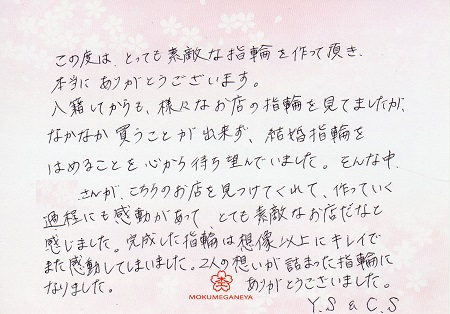 この度は、とっても素敵な指輪を作って頂き、
本当にありがとうございます。
入籍してからも、様々なお店の指輪を見てましたが、
なかなか買うことが出来ず、結婚指輪を
はめることを心から待ち望んでいました。そんな中、
さんが、こちらのお店を見つけてくれて、作っていく
過程にも感動があって、とても素敵なお店だなと
感じました。完成した指輪は想像以上にキレイで
また感動してしまいました。2人の想いが詰まった指輪に
なりました。 ありがとうございました。
MOKUMEGANEYA
Y.S & C.S